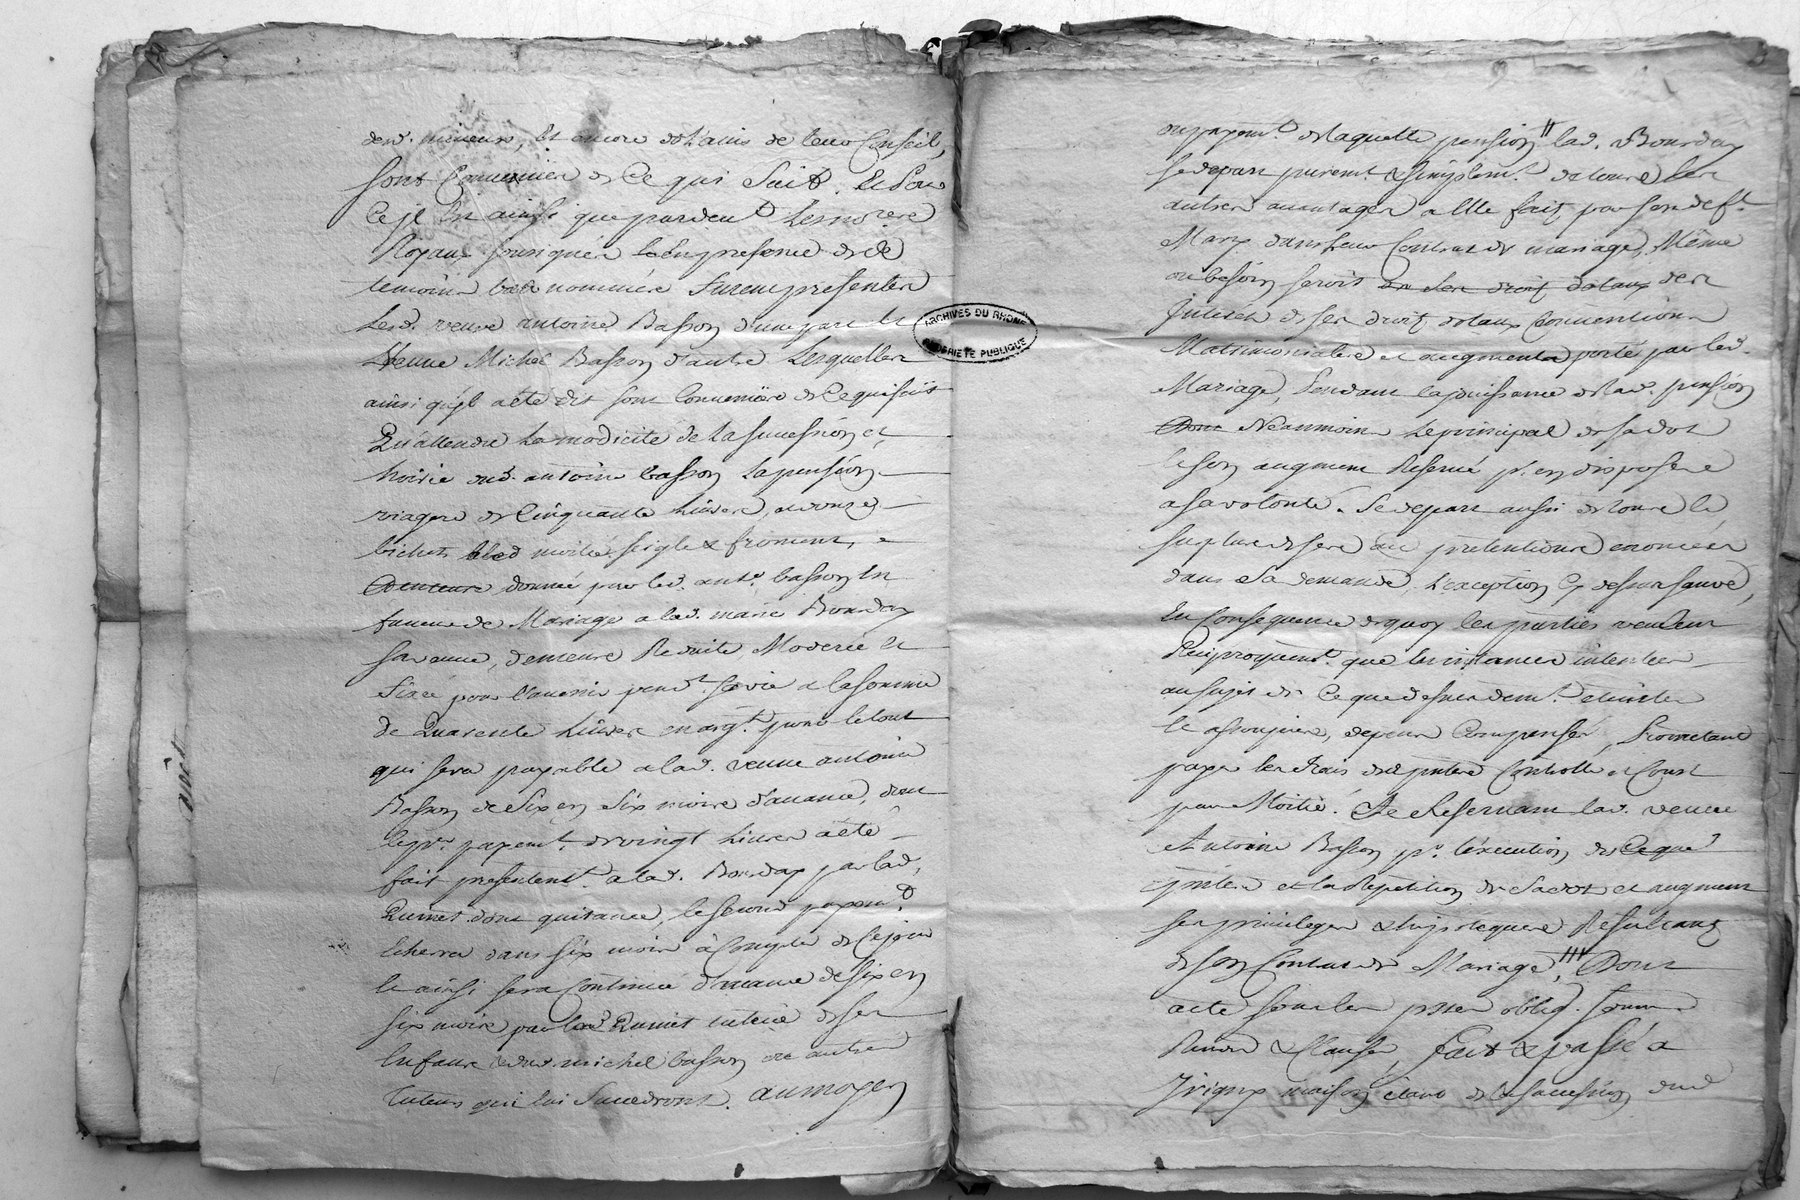 desd. mineurs, Et encore de l'avis de leur Conseil,
sont Convenues de Ce qui Suit, Et Pour
Ce je En ainsi que pardevt. Les notaires
Royaux soussignés Et En presence de
temoins bas nommés furent presentes
Lesd. veuve antoine Basson d'une part et
Veuve Michel Basson d'autre Lesquelles
ainsi qu'il a été dit sont Convenües de Ce qui suit
Qu'attendu La modicité de La succession et
hoirie dud. antoine basson La pension
viagere de Cinquante Livres, et douze
bichets bled moitié seigle & froment,
Demeure donnée par led. ante. basson En
faveur de Mariage a lad. marie Bourday
sa veuve, demeure Reduite Moderée et
fixée pour l'avenir pendt. sa vie a la somme
de Quarente Livres en argt. pour le tout
qui sera payable a lad. veuve antoine
Basson de Six en Six mois d'avance, dont
le pr. payemt. de vingt Livres a été
fait presentemt. a lad. Bourday par lad.
Quinet dont quitance, le second payemt.
Echerra dans six mois à Compter de Ce jour
Et ainsi sera Continué d'avance de six en
six mois par lad. Quinet tutrice de ses
Enfans & dud. michel basson ou autres
tuteurs qui lui Succedront. au moyen
ou payemt. de laquelle pension lad. Bourday
se depart puremt. & simplemt. de tous les
autres avantages a Elle fait par son deft.
Mary dans leur Contrat de mariage, Même
ou besoin seroit de ses droits dotaux des
Interets de ses droits dotaux Conventions
Matrimoniales et augment portés par led.
Mariage, Pendant la jouissance de lad. pension
Dont Neanmoins Le principal de sa dot
Et son augment Reservé pr. en disposer
a sa volonté. Se depart aussi de tout le
surplus de ses pretentions enoncées
dans Sa demande, L'exception Cy dessus sauve,
En Consequence de quoy les parties veulent
Reciproquemt. que les instances intentées
au sujet de Ce que dessus demt. eteintes
Et assoupies, depens Compensés, Promettant
payer les frais des pntes Controlle et Court
par Moitié. Se Reservant lad. veuve
Antoine Basson pr. l'execution des Ce que
pntes et la Repetition de Sa dot et augment
ses privileges & hipoteques Resultans
de son Contrat de Mariage, Dont
acte sous les pnes oblig. soum.
Renon & Clauses, fait & passé a
Irigny maison Claro de la succession dud
ARCHIVES DU RHÔNE
PROPRIETE PUBLIQUE